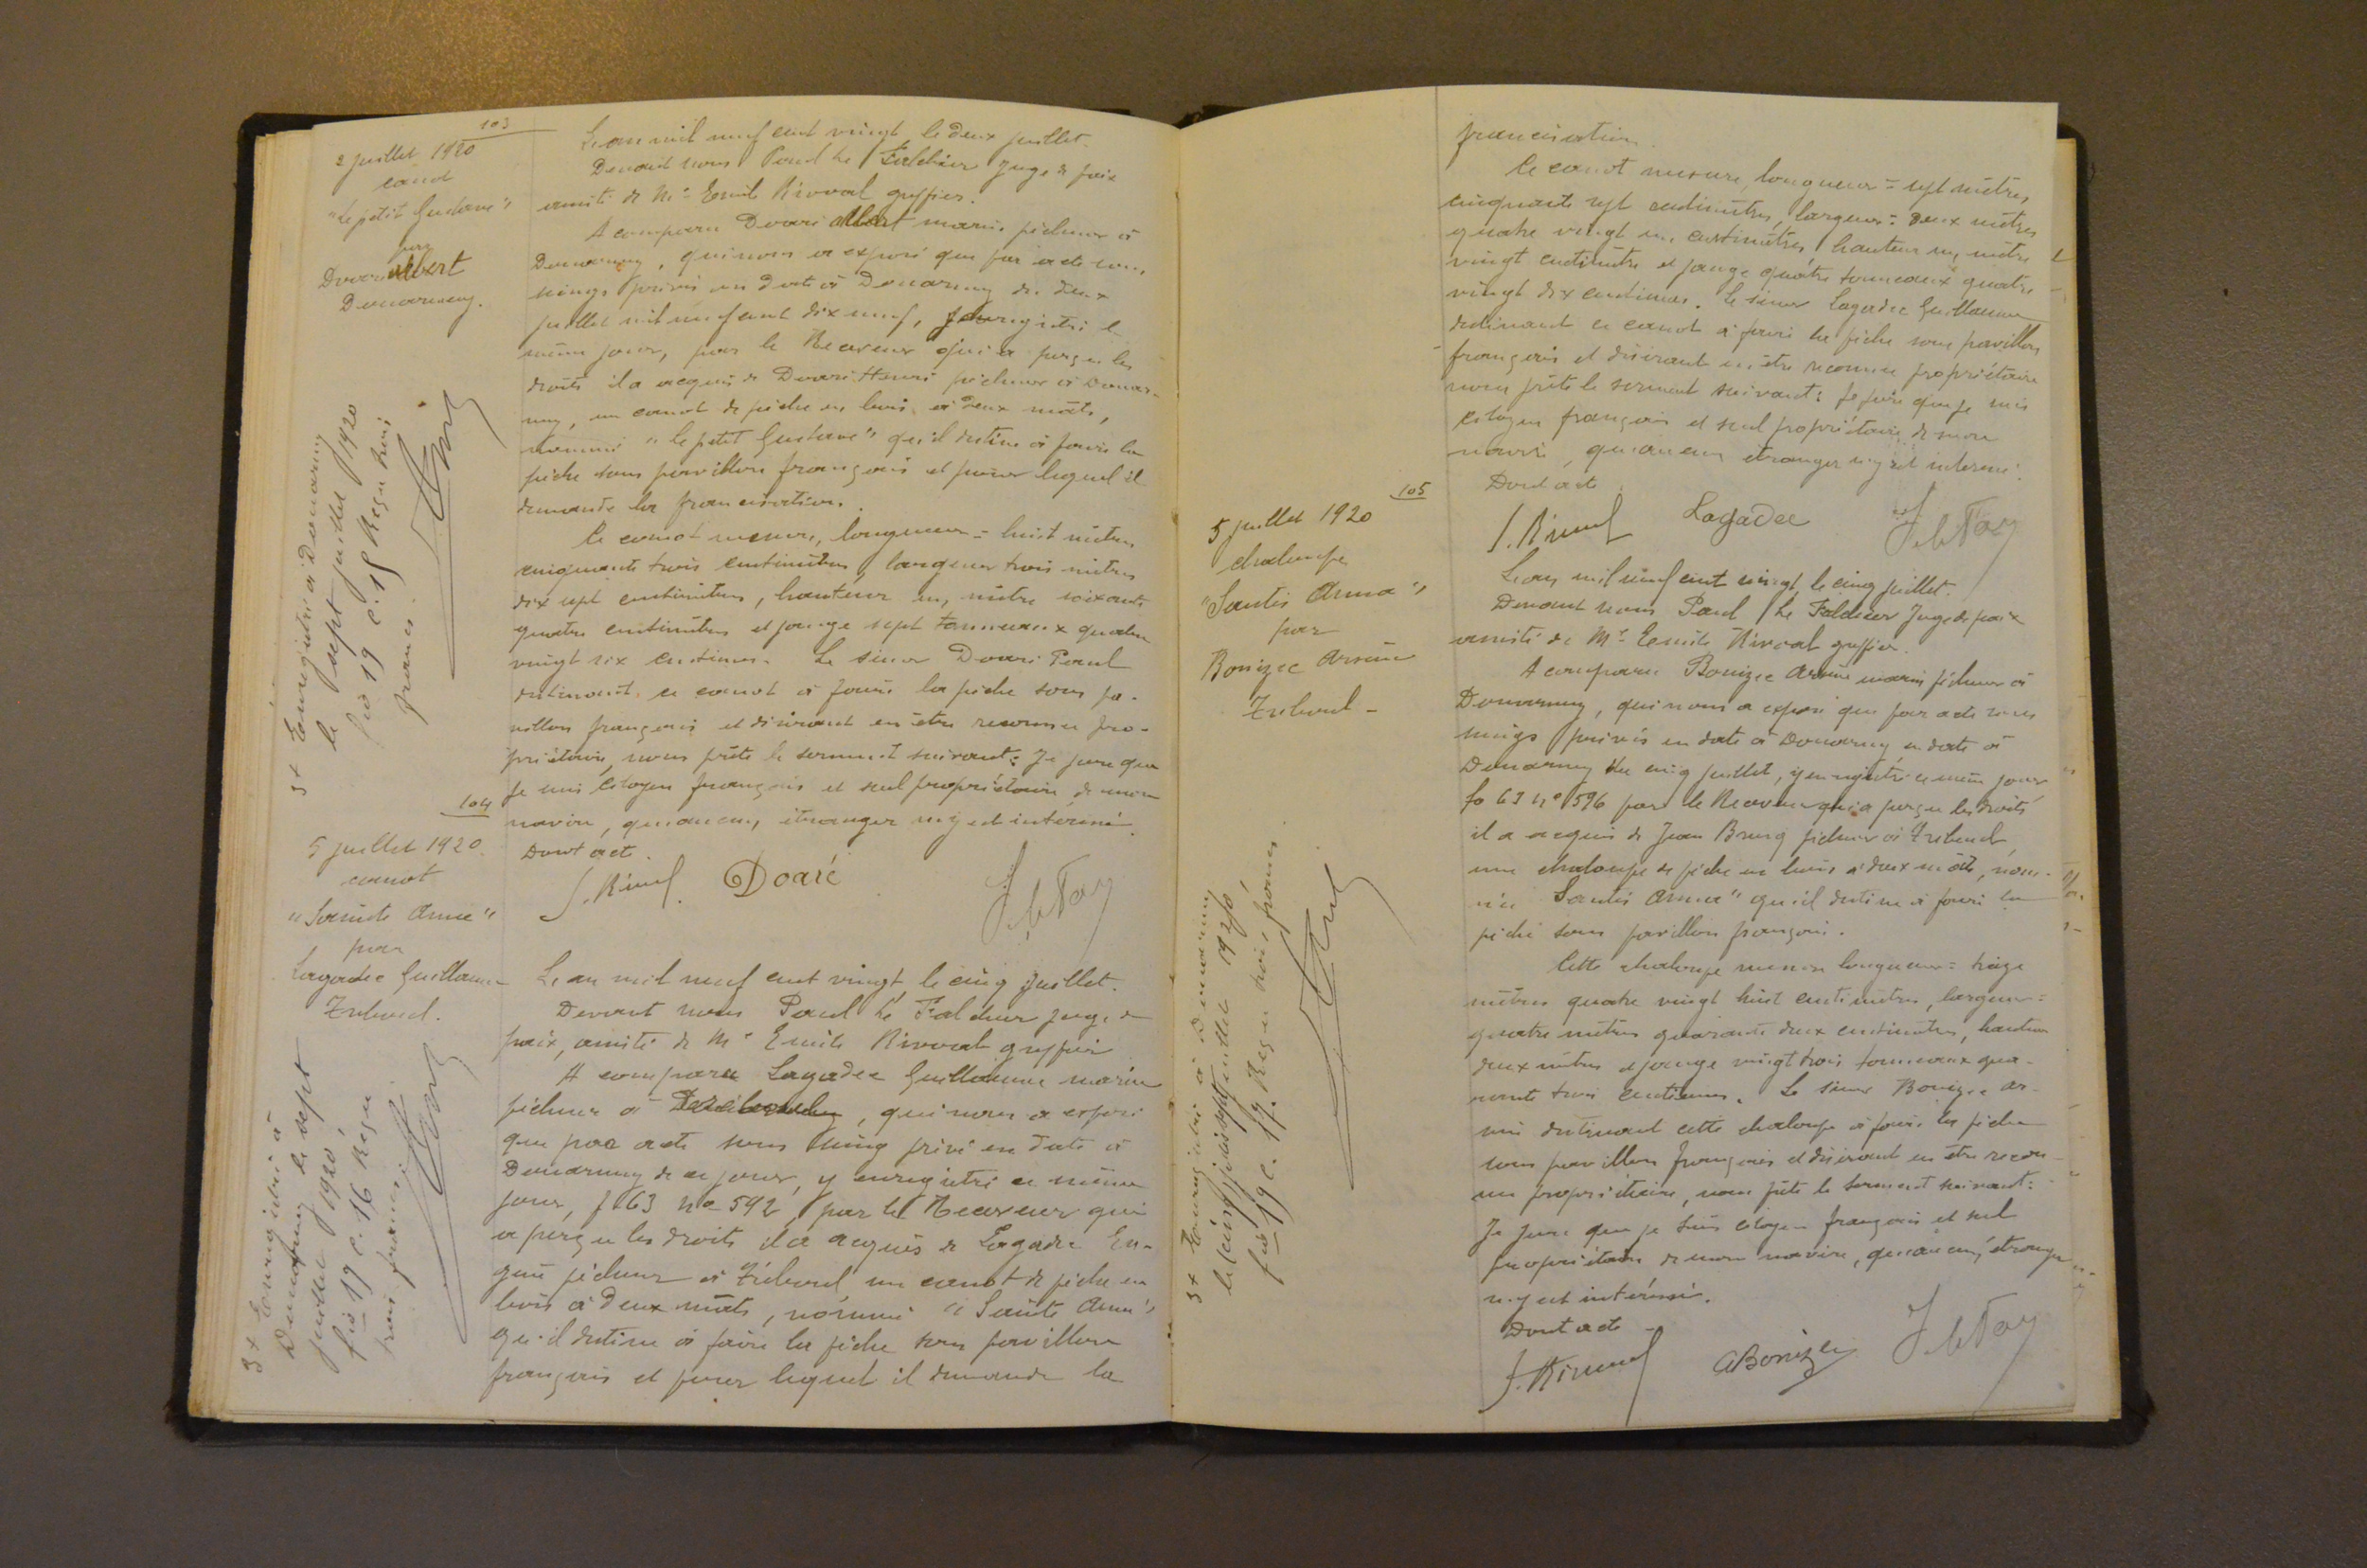 103
2 juillet 1920
canot
"Le petit Gustave"
par
Doaré Albert
Douarnenez.
L'an mil neuf cent vingt le deux juillet.
Devant nous Paul Le Falchier Juge de paix
assisté de Me Emile Rivoal greffier.
A comparu Doaré Albert marin pêcheur à
Douarnenez, qui nous a exposé que par acte sous
seings privés en date à Douarnenez du deux
juillet mil neuf cent dix neuf, enregistré le
même jour, par le Receveur qui a perçu les
droits il a acquis de Doaré Henri pêcheur à Douarne-
nez, un canot de pêche en bois, à deux mâts,
nommé "le petit Gustave" qu'il destine à faire la
pêche sous pavillon français et pour lequel il
demande la francisation.
Ce canot mesure, longueur = huit mètres
cinquante trois centimètres, largeur trois mètres
dix sept centimètres, hauteur un mètre soixante
quatre centimètres et jauge sept tonneaux quatre
vingt six centièmes. Le sieur Doaré Paul
destinant ce canot à faire la pêche sous pa-
villon français et désirant en être reconnu pro-
priétaire, nous prête le serment suivant: Je jure que
je suis citoyen français et seul propriétaire de mon
navire, qu'aucun étranger n'y est intéressé.
Dont acte.
Doaré
3 x Enregistré à Douarnenez
le sept juillet 1920
fo 19 c. 15 Reçu trois
francs
104
5 juillet 1920.
canot
"Sainte Anne"
par
Lagadec Guillaume
Tréboul.
L'an mil neuf cent vingt, le cinq juillet.
Devant nous Paul Le Falchier juge de
paix, assisté de Me Emile Rivoal greffier
A comparu Lagadec Guillaume marin
pêcheur à Tréboul, qui nous a exposé
que par acte sous seing privé en date à
Douarnenez de ce jour, y enregistré ce même
jour, f 63 no 592, par le Receveur qui
a perçu les droits il a acquis de Lagadec Eu-
gène pêcheur à Tréboul un canot de pêche en
bois à deux mâts, nommé "Sainte Anne"
qu'il destine à faire la pêche sous pavillon
français et pour lequel il demande la
3 x Enregistré à
Douarnenez le sept
juillet 1920,
fo 19 c. 16 Reçu
trois francs
francisation.
Ce canot mesure, longueur = sept mètres,
cinquante sept centimètres, largeur = deux mètres
quatre vingt un centimètres hauteur un mètre
vingt centimètres et jauge quatre tonneaux quatre
vingt dix centièmes. Le sieur Lagadec Guillaume
destinant ce canot à faire la pêche sous pavillon
français et désirant en être reconnu propriétaire
nous prête le serment suivant: Je jure que je suis
citoyen français et seul propriétaire de mon
navire, qu'aucun étranger n'y est intéressé.
Dont acte
Lagadec
105
5 juillet 1920
chaloupe
"Santés Anna"
par
Bonizec Arsène
Tréboul -
L'an mil neuf cent vingt, le cinq juillet.
Devant nous Paul Le Falchier Juge de paix
assisté de Me Emile Rivoal greffier.
A comparu Bonizec Arsène marin pêcheur à
Douarnenez, qui nous a exposé que par acte sous
seings privés en date à Douarnenez en date à
Douarnenez du cinq juillet, y enregistré ce même jour
fo 63 no 596 par le Receveur qui a perçu les droits
il a acquis de Jean Brusq pêcheur à Tréboul
une chaloupe de pêche en bois à deux mâts, nom-
mée Santés Anna" qu'il destine à faire la
pêche sous pavillon français.
Cette chaloupe mesure longueur = treize
mètres quatre vingt huit centimètres, largeur =
quatre mètres quarante deux centimètres, hauteur
deux mètres et jauge vingt trois tonneaux qua-
rante trois centièmes. Le sieur Bonizec Ar-
sène destinant cette chaloupe à faire la pêche
sous pavillon français et désirant en être recon-
nu propriétaire, nous prête le serment suivant:
Je jure que je suis citoyen français et seul
propriétaire de mon navire, qu'aucun étranger
n'y est intéressé.
Dont acte -
ABonizec
3 x Enregistré à Douarnenez
le sept juillet 1920,
fo 19 c. 17. Reçu trois francs